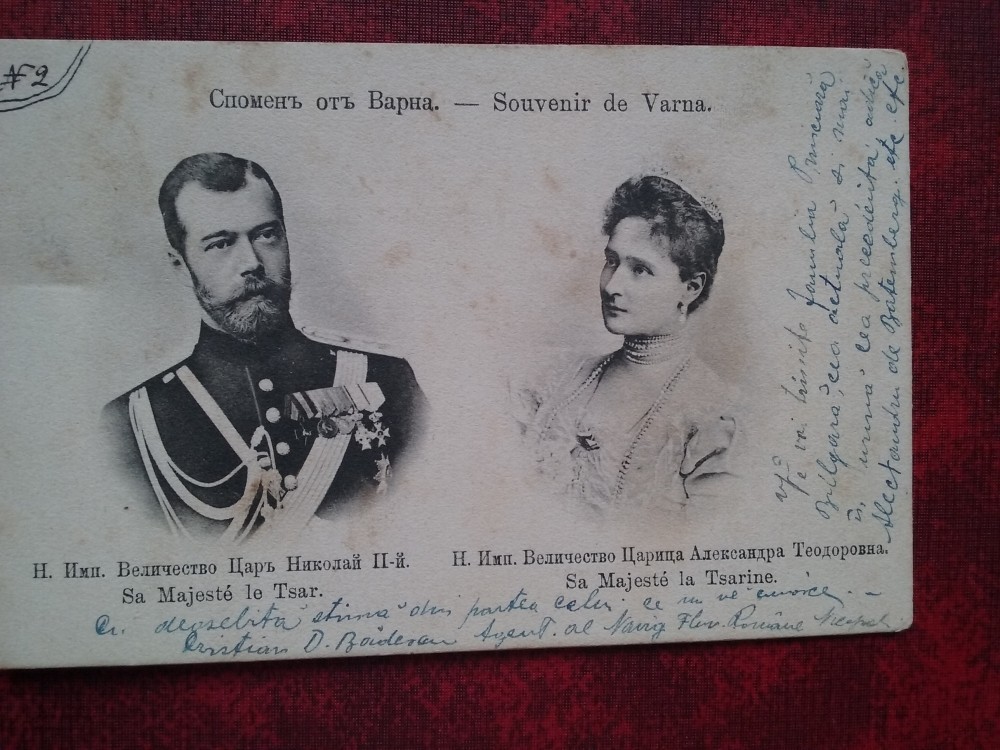 № 2
Споменъ отъ Варна. — Souvenir de Varna.
Н. Имп. Величество Царъ Николай II-й.
Sa Majesté le Tsar.
Н. Имп. Величество Царица Александра Теодоровна.
Sa Majesté la Tsarine.
Cu deosebită stimă din partea celui ce nu vĕ
Cristian D. Agent. al Navig Fluv. Române
Ve voi trimite familia Princiară
Bulgară, cea actuală și mai
în urmă cea precedentă adică
Alecsandru de Batemberg. etc. etc.